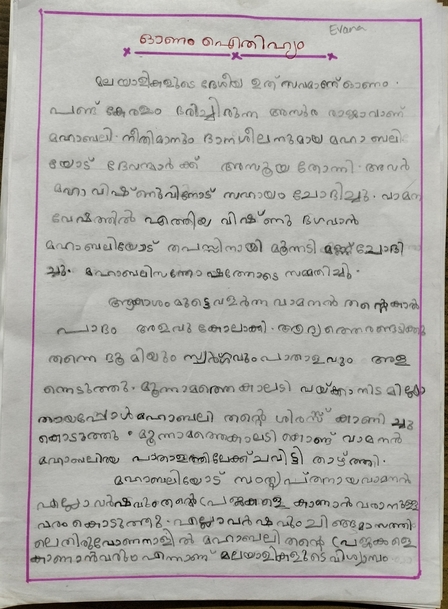 Evana
ഓണം ഐതിഹ്യം
മലയാളികളുടെ ദേശീയ ഉത്സവമാണ് ഓണം.
പണ്ട് കേരളം ഭരിച്ചിരുന്ന അസുര രാജാവാണ്
മഹാബലി. നീതിമാനും ദാനശീലനുമായ മഹാബലി
യോട് ദേവന്മാർക്ക് അസൂയ തോന്നി. അവർ
മഹാവിഷ്ണുവിനോട് സഹായം ചോദിച്ചു. വാമന
വേഷത്തിൽ എത്തിയ വിഷ്ണു ഭഗവാൻ
മഹാബലിയോട് തപസ്സിനായി മൂന്നടി മണ്ണ് ചോദി
ച്ചു. മഹാബലി സന്തോഷത്തോടെ സമ്മതിച്ചു.
ആകാശം മുട്ടെ വളർന്ന വാമനൻ തന്റെ കാൽ
പാദം അളവുകോലാക്കി. ആദ്യത്തെ രണ്ടടിക്കു
തന്നെ ഭൂമിയും സ്വർഗ്ഗവും പാതാളവും അള
ന്നെടുത്തു. മൂന്നാമത്തെ കാലടി വയ്ക്കാനിടമില്ലാ
തായപ്പോൾ മഹാബലി തന്റെ ശിരസ്സ് കാണിച്ചു
കൊടുത്തു. മൂന്നാമത്തെ കാലടി കൊണ്ട് വാമനൻ
മഹാബലിയെ പാതാളത്തിലേക്ക് ചവിട്ടി താഴ്ത്തി.
മഹാബലിയോട് സംതൃപ്തനായ വാമനൻ
എല്ലാ വർഷവും തന്റെ പ്രജകളെ കാണാൻ വരാനുള്ള
വരം കൊടുത്തു. എല്ലാ വർഷവും ചിങ്ങമാസത്തി
ലെ തിരുവോണനാളിൽ മഹാബലി തന്റെ പ്രജകളെ
കാണാൻ വരും എന്നാണ് മലയാളികളുടെ വിശ്വാസം